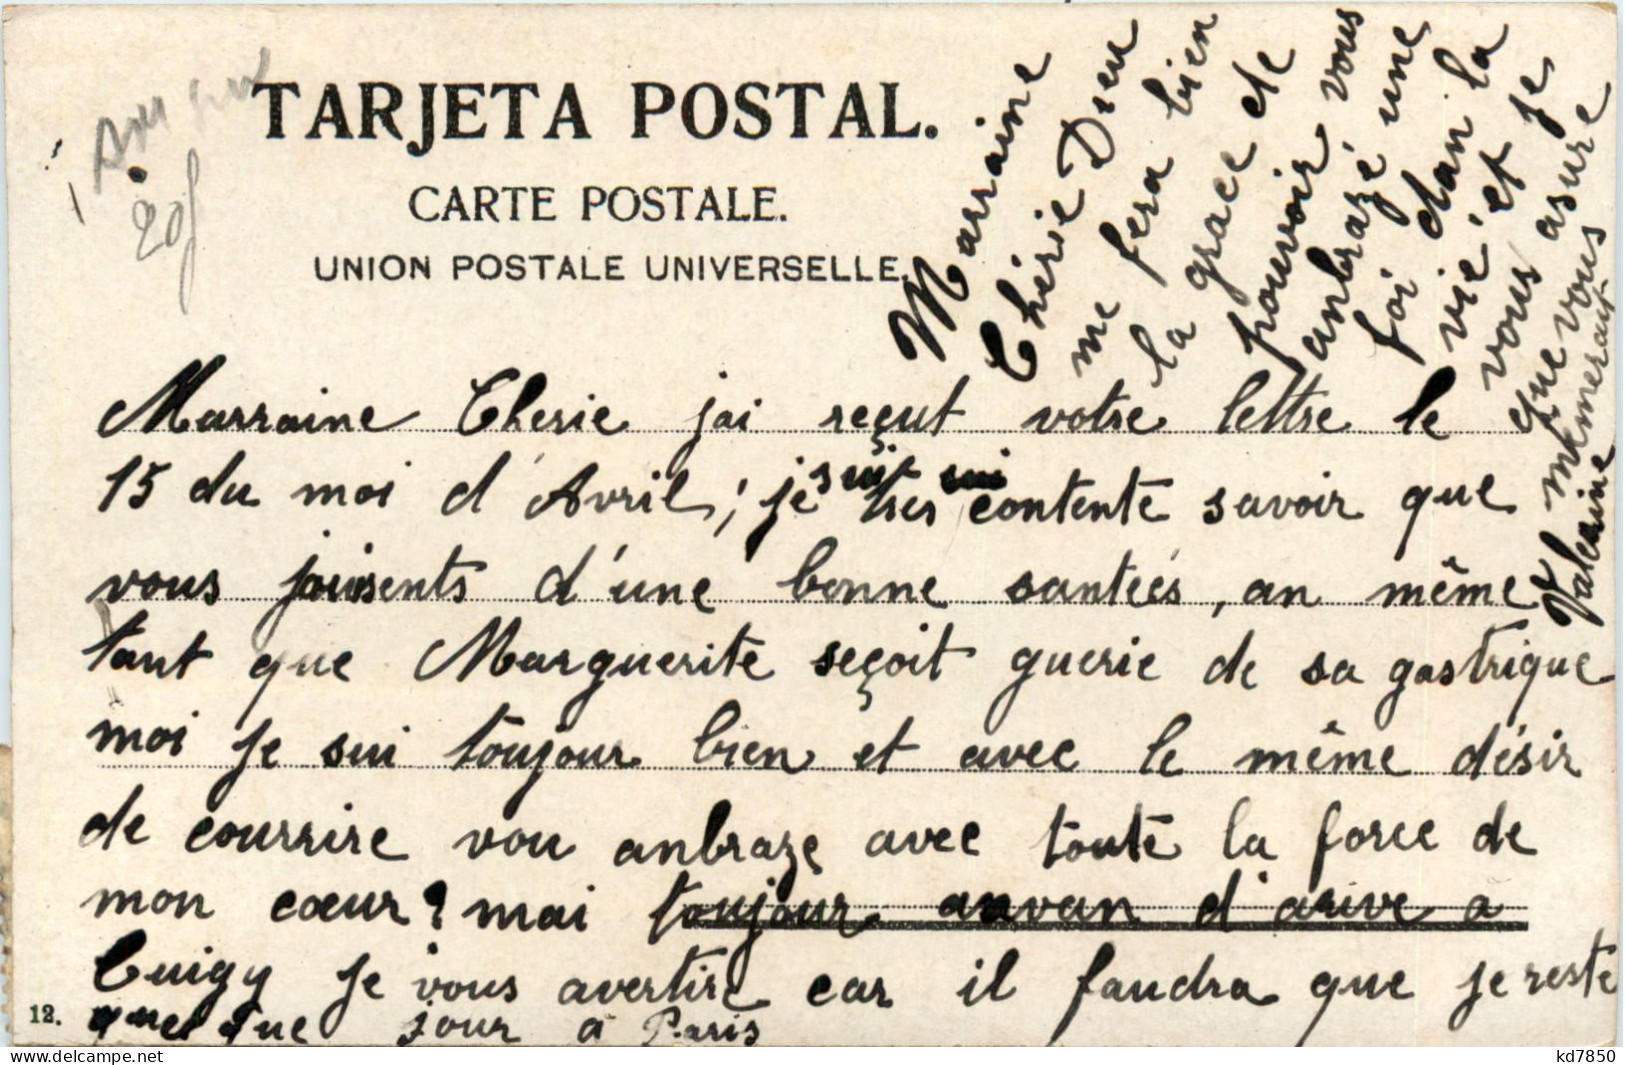 TARJETA POSTAL.
CARTE POSTALE.
UNION POSTALE UNIVERSELLE.
20f
Marraine Cherie jai reçut votre lettre le
15 du moi d'Avril, je suis tres contente savoir que
vous jouisents d'une bonne santées, an même
tant que Marguerite seçoit guerie de sa gastrique
moi je sui toujour bien et avec le même désir
de courrire vou anbraze avec toute la force de
mon cœur? mai toujour anvan d'arive a
Cuigy je vous avertire car il faudra que je reste
quel que jour à Paris
12.
Marraine
Chérie Dieu
me fera bien
la grace de
pouvoir vous
anbrazé une
foi dan la
vie et je
vous asure
que vous
m'emmerait
Valeraine
kd7850